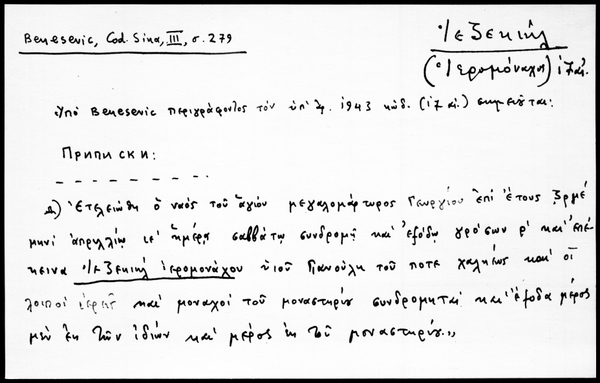 Benesevic, Cod. Sina, III, σ. 279
Ἰεζεκιήλ
(Ἱερομόναχος) ιζ αἰ.
Ὑπὸ Benesevic περιγράφοντος τὸν ὑπ' ἀρ. 1943 κώδ. (ιζ αἰ.) σημειοῦται:
Приписки:
α) Ἐτελειώθη ὁ ναὸς τοῦ ἁγίου μεγαλομάρτυρος Γεωργίου ἐπὶ ἔτους ζρμέ
μηνὶ ἀπριλλίῳ ιε' ἡμέρᾳ σαββάτῳ συνδρομῇ καὶ ἐξόδῳ γρόσων ρ' καὶ ἐπέ
κεινα Ἰεζεκιήλ ἱερομονάχου υἱοῦ Γιανούλη τοῦ ποτε χαλκέως καὶ οἱ
λοιποὶ ἱερεῖς καὶ μοναχοὶ τοῦ μοναστηρίου συνδρομηταὶ καὶ ἔξοδα μέρος
μὲν ἐκ τῶν ἰδίων καὶ μέρος ἐκ τοῦ μοναστηρίου.,,